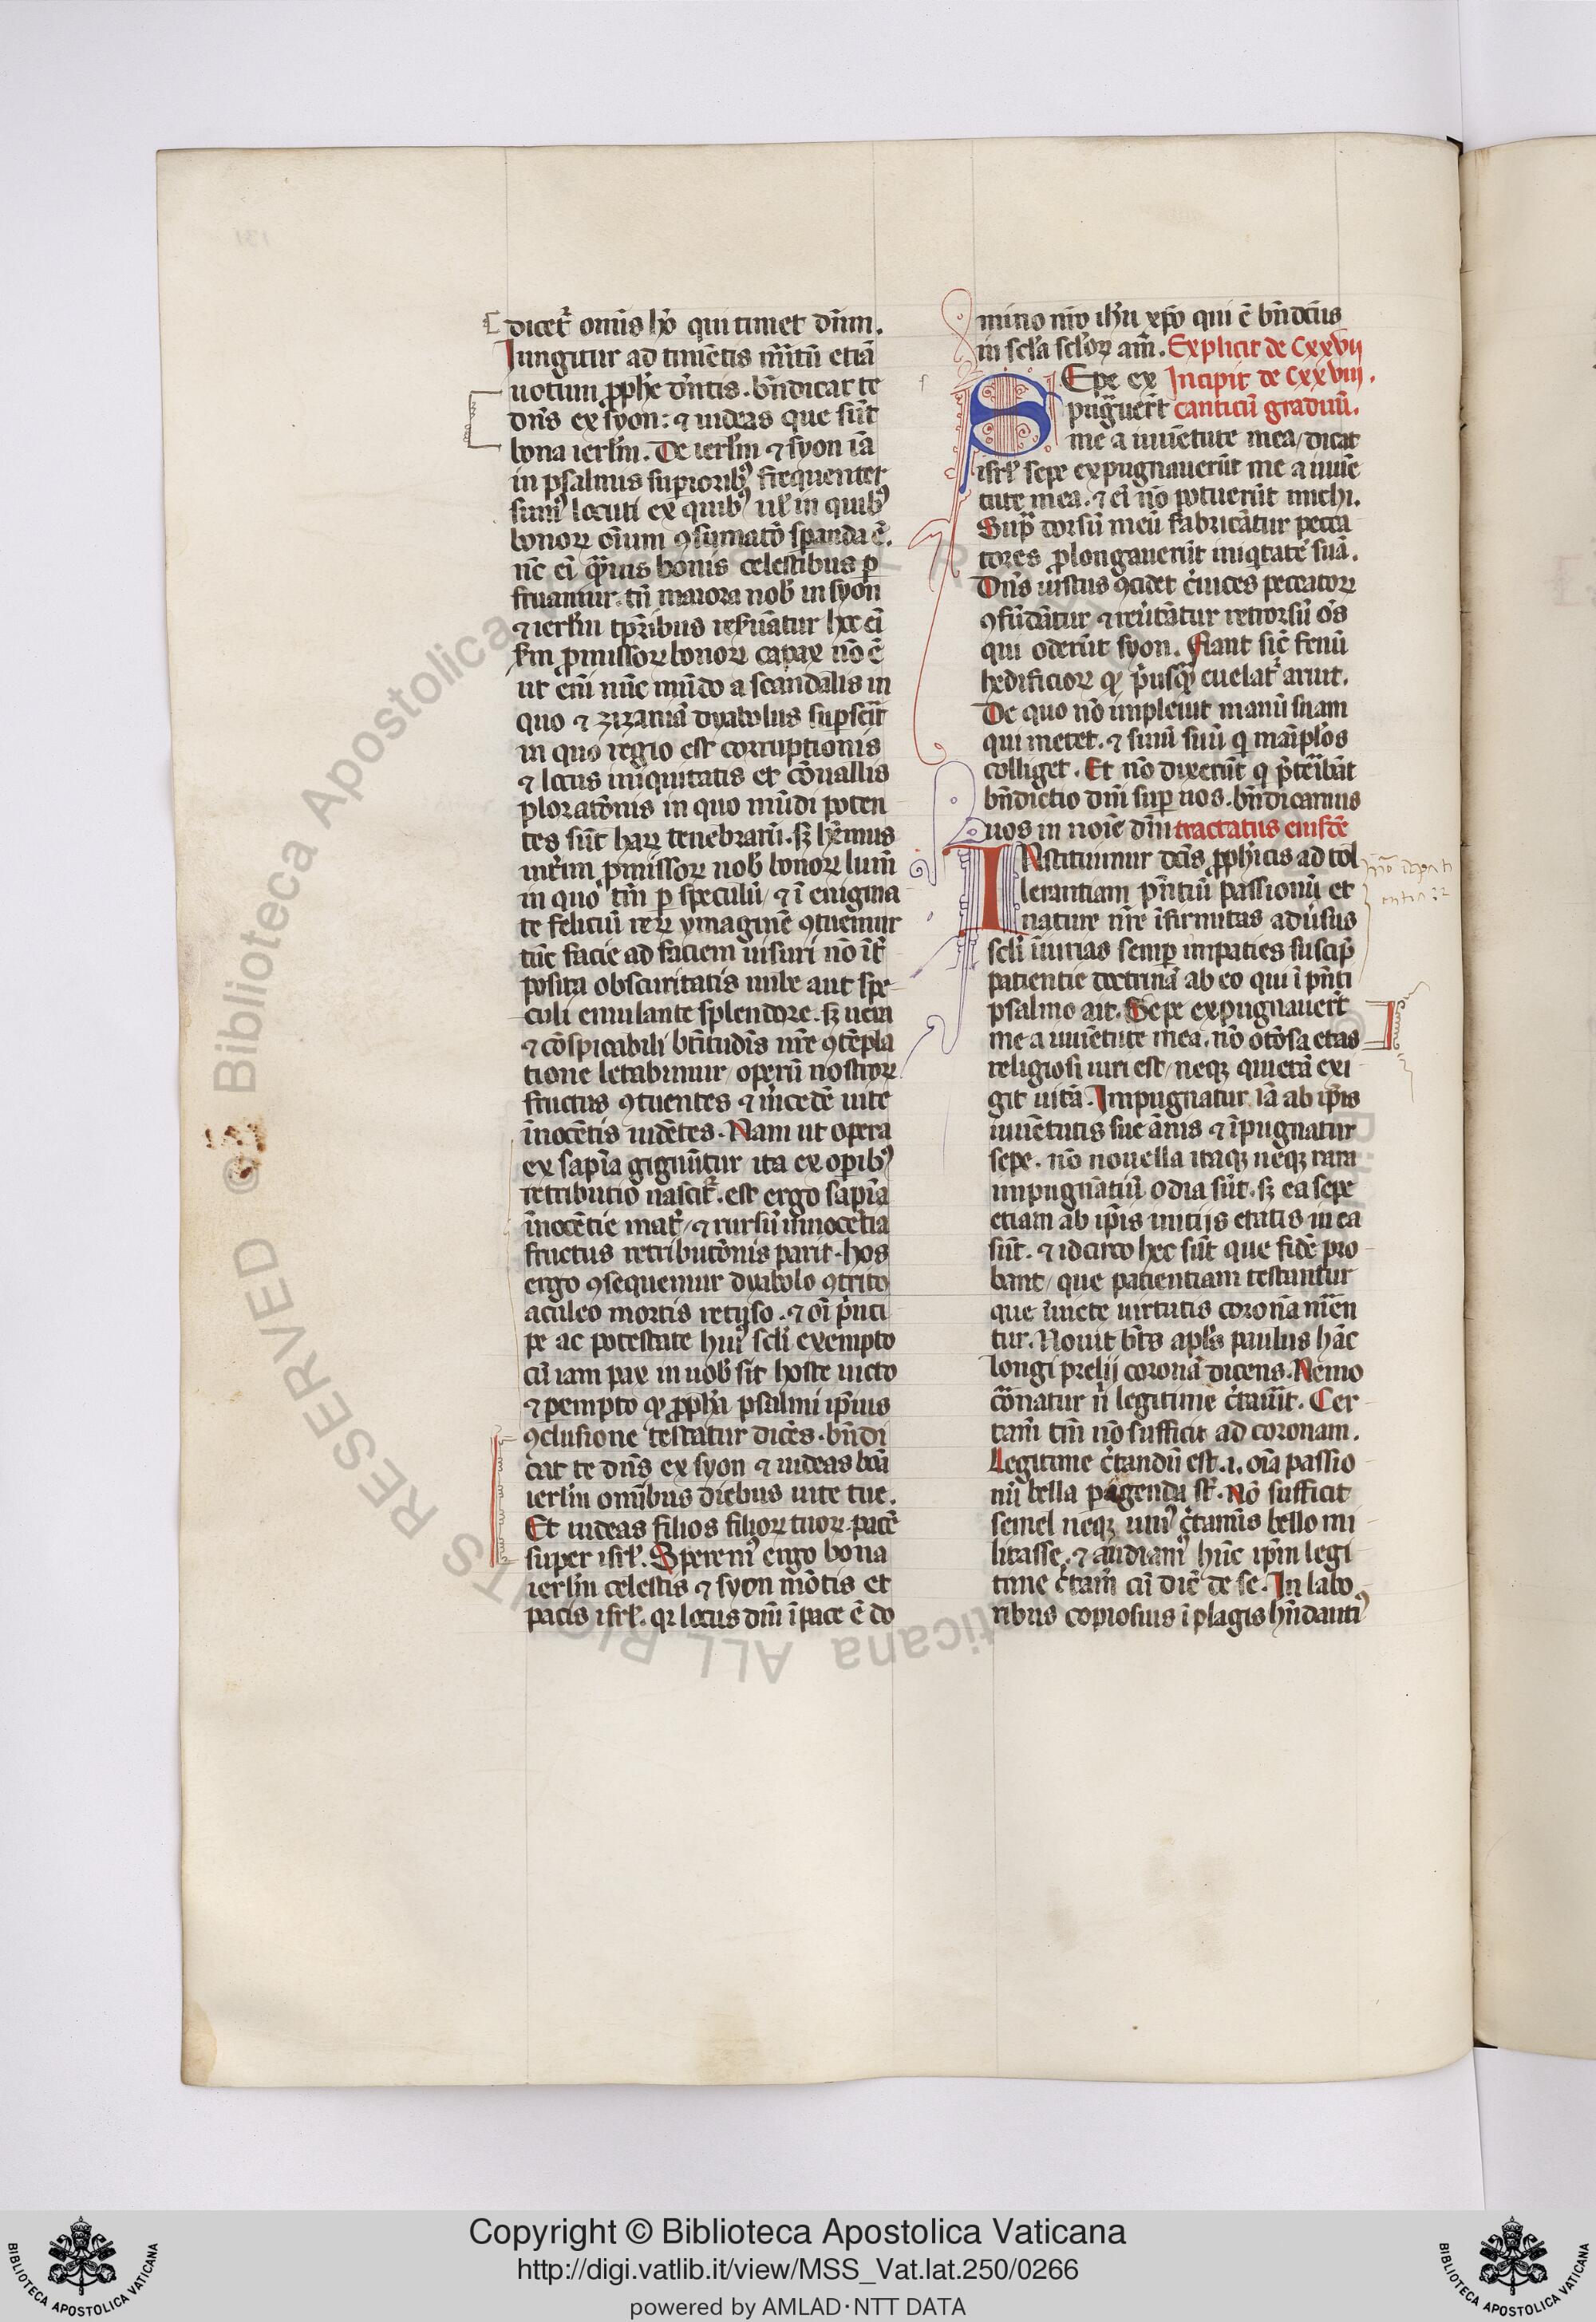 dicet᷑ omīs hō qui timet dn̄m.
Iungitur ad timētis mītū etiā
uotum ꝓph̄e dn̄tis. bn̄dicat te
dn̄s ex syon: ⁊ uideas que sūt
bona ierłm. De ierłm ⁊ syon iā
in psalmis supioribꝰ frequenter
sumꝰ locuti ex quibꝰ uł in quibꝰ
bonoꝝ oīum ꝯsumatō spanda ē.
nc̄ ei q̄uis bonis celestibus ꝑ
fruamur. tn̄ maiora nob̄ in syon
⁊ ierłm tp̄ribus res̄uātur hec ei
fm ꝓmissoꝝ bonoꝝ capax nō ē
ut eni nūc mūdo a scandalis in
quo ⁊ zizaniā dyabolus supseīt
in quo regio est corruptionis
⁊ locus iniquitatis et cōuallis
ploratōnis in quo mūdi poten
tes sūt haꝝ tenebrarū. sꝫ hēmus
int̄im ꝓmissoꝝ nob̄ bonoꝝ lum̄
in quo tm̄ ꝑ speculū ⁊ ī enigma
te feliciū reꝝ ymaginē ꝯtuemur
tūc facie ad faciem uisuri nō īt᷑
posita obscuritatis nube aut spe
culi emulante splendore. sꝫ uera
⁊ cōspicabili bt̄itudīs nr̄e ꝯtēpla
tione letabimur operū nostroꝝ
fructus ꝯtuentes ⁊ m̄cedē uite
īnocētis uidētes. Nam ut opera
ex sapīa gignūtur ita ex opibꝰ
retributio nascit᷑. est ergo sapīa
īnocētie mat᷑ ⁊ rursū innocētia
fructus retributōnis parit. hos
ergo ꝯsequemur dyabolo ꝯtrito
aculeo mortis retuso. ⁊ oī p̄nci
pe ac potestate huiꝰ scłi exempto
cū iam pax in nob̄ sit hoste uicto
⁊ pempto ꝙ ꝓph̄a psalmi ip̄ius
ꝯclusione testatur dicēs. bn̄di
cat te dn̄s ex syon ⁊ uideas bōa
ierłm omībus diebus uite tue.
Et uideas filios filioꝝ tuoꝝ pacē
super isrł. Speremꝰ ergo bona
ierłm celestis ⁊ syon mōtis et
pacis isrł. qꝛ locus dn̄i ī pace ē do
mino nr̄o ih̄u xp̄o qui ē bn̄dc̄us
in scła scłoꝝ am̄. Explicit de Cxxvii
SEpe ex Incipit de Cxxviii.
pugūert canticū graduū.
me a iuuētute mea dicat
isrł sepe expugnauerūt me a iuuē
tute mea. ⁊ ei nō potuerūt michi.
Supᷓ dorsū meū fabricātur pecca
tores ꝓlongauerūt iniqtatē suā.
Dn̄s iustus ꝯcidet c̄uices peccatoꝝ
ꝯfūdātur ⁊ reūtātur retrorsū oēs
qui oderūt syon. Fiant sic̄ fenū
hedificioꝝ ꝙ p̄usqᷓ euelat᷑ aruit.
De quo nō impleuit manū suam
qui metet. ⁊ sinū suū q̇ manīplōs
colliget. Et nō dixerūt q̇ p̄teībāt
bn̄dictio dn̄i sup nos. bn̄dicamus
uos in noīe dn̄i tractatus eiusdē
INstituimur dc̄is ꝓph̄icis ad tol
lerantiam pn̄tiū passionū et
nature nr̄e īfirmitas adūsus
scłi iīurias semp impatiēs suscip̄
patientie doctrinā ab eo qui ī pn̄ti
psalmo ait. Sepe expugnauert̄
me a iuuētute mea. nō otōsa etas
religiosi uiri est neqꝫ quietā exi
git uitā. Impugnatur iā ab ip̄is
iuuētutis sue ānis ⁊ īpugnatur
sepe. nō nouella itaqꝫ neqꝫ rara
impugnātiū odia sūt. sꝫ ea sepe
etiam ab ip̄is initijs etatis in ea
sūt. ⁊ idcirco hec sūt que fidē pro
bant que patientiam testantur
que īuicte uirtutis coronā mēn
tur. Nouit bt̄s apłs paulus hāc
longi prelij coronā dicens. Nemo
cōnatur n̄ legitime c̄tauīt. Cer
tam̄ tm̄ nō sufficit ad coronam.
Legitime c̄tandū est. .i. oīa passio
nū bella pagenda st̄. Nō sufficit
semel neqꝫ uniꝰ c̄tamīs bello mi
litasse. ⁊ audiamꝰ hūc ip̄m legi
time c̄tam̄ cū dic̄ de se. In labo
ribus copiosius ī plagis hn̄dantiꝰ
Copyright © Biblioteca Apostolica Vaticana
http://digi.vatlib.it/view/MSS_Vat.lat.250/0266
powered by AMLAD·NTT DATA